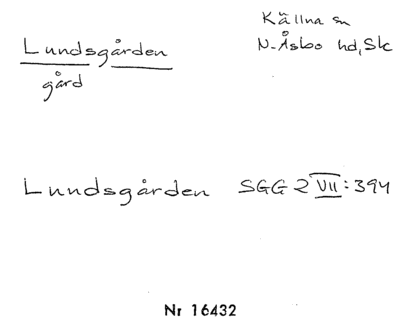 Källna sn
Lundsgården
N-Åsbo hd, Sk
gård
Lundsgården SGG 2 VII:394
Nr 16432